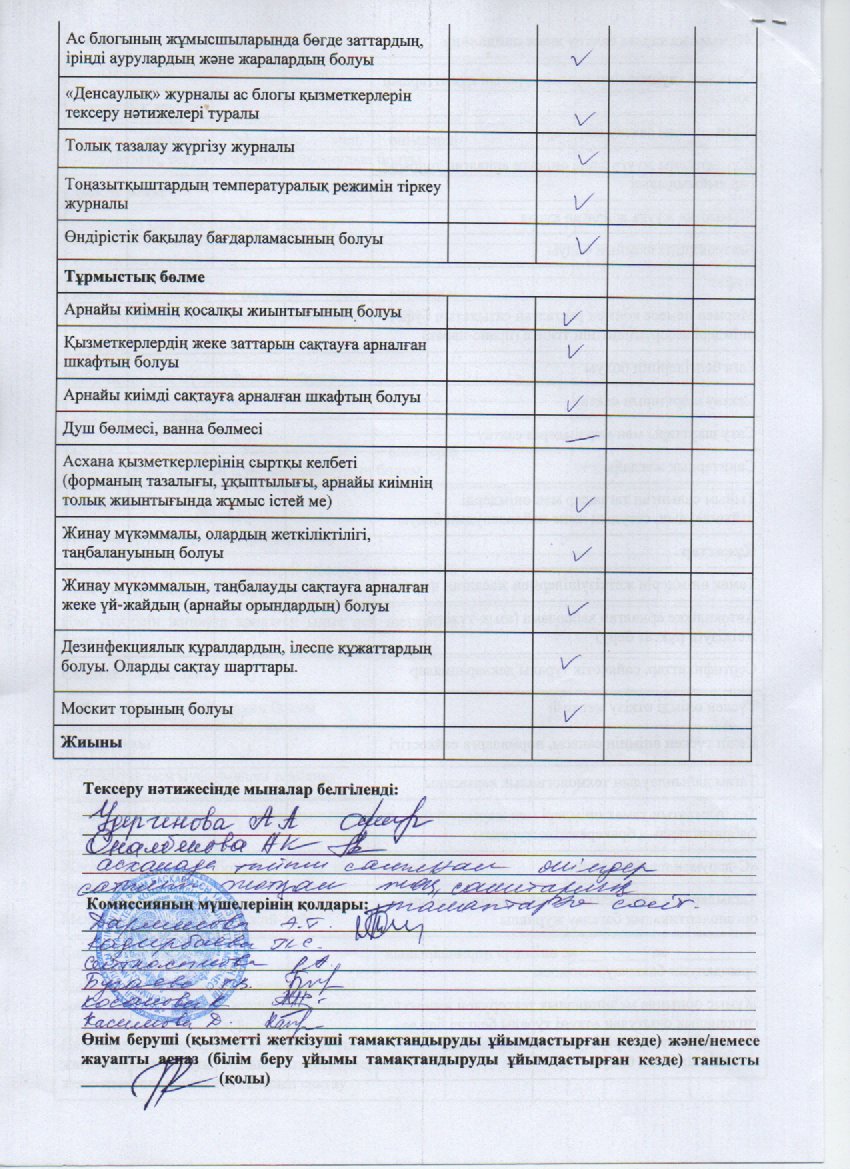 Ас блогының жұмысшыларында бөгде заттардың,
іріңді аурулардың және жаралардың болуы ✓
«Денсаулық» журналы ас блогы қызметкерлерін
тексеру нәтижелері туралы ✓
Толық тазалау жүргізу журналы ✓
Тоңазытқыштардың температуралық режимін тіркеу
журналы ✓
Өндірістік бақылау бағдарламасының болуы ✓
Тұрмыстық бөлме
Арнайы киімнің қосалқы жиынтығының болуы ✓
Қызметкерлердің жеке заттарын сақтауға арналған ✓
шкафтың болуы
Арнайы киімді сақтауға арналған шкафтың болуы ✓
Душ бөлмесі, ванна бөлмесі —
Асхана қызметкерлерінің сыртқы келбеті
(форманың тазалығы, ұқыптылығы, арнайы киімнің
толық жиынтығында жұмыс істей ме) ✓
Жинау мүкәммалы, олардың жеткіліктілігі,
таңбалануының болуы ✓
Жинау мүкәммалын, таңбалауды сақтауға арналған
жеке үй-жайдың (арнайы орындардың) болуы ✓
Дезинфекциялық құралдардың, ілеспе құжаттардың
болуы. Оларды сақтау шарттары. ✓
Москит торының болуы ✓
Жиыны
Тексеру нәтижесінде мыналар белгіленді:
А А
А К
асханада өнімдер
санитарлық
Комиссияның мүшелерінің қолдары: талаптарға сәйкес.
А.Т.
Кадирбаева
А.
Бугаева
Косанова
Касимова Д.
Өнім беруші (қызметті жеткізуші тамақтандыруды ұйымдастырған кезде) және/немесе
жауапты аспаз (білім беру ұйымы тамақтандыруды ұйымдастырған кезде) танысты
(қолы)